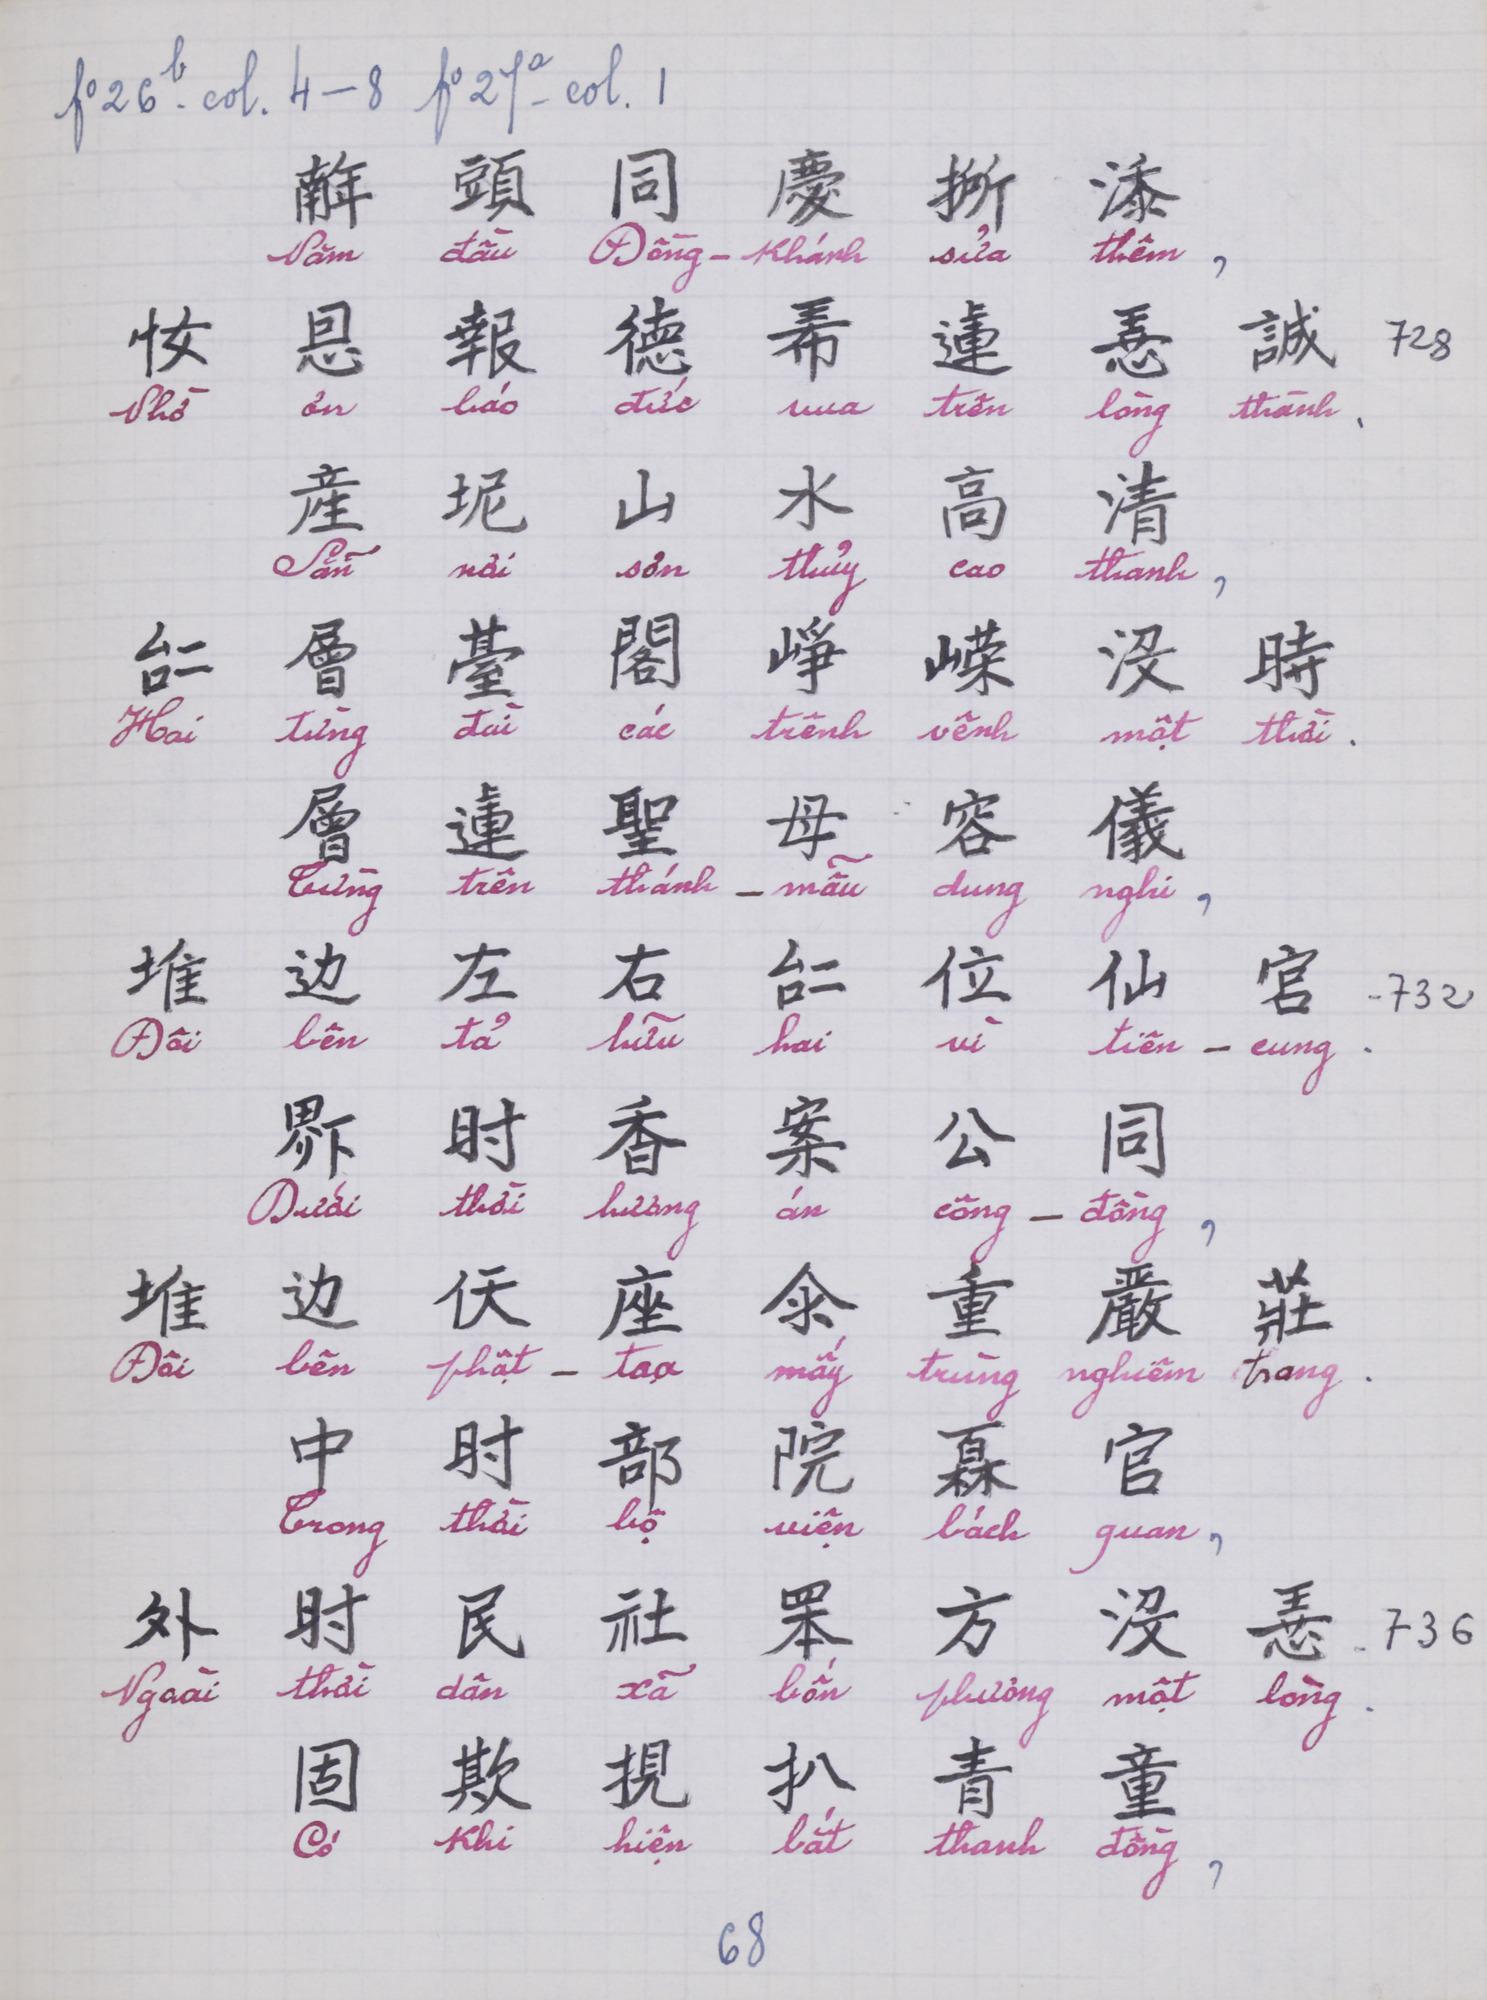 fº 26ᵇ- col. 4–8 fº 27ᵃ- col. 1
𢆥 頭 同 慶 𢭮 添
Năm đầu Đồng – Khánh sửa thêm,
𢖵 恩 報 德 𢂞 蓮 𢚸 誠 728
Nhớ ơn báo đức vua trên lòng thành.
産 坭 山 水 高 清
Sẵn nơi sơn thủy cao thanh,
𠄩 層 臺 閣 崢 嶸 没 時
Hai từng đài các trênh vênh một thời.
層 蓮 聖 母 容 儀
Từng trên thánh – mẫu dung nghi,
堆 边 左 右 𠄩 位 仙 官 -732
Đôi bên tả hữu hai vì tiên – cung.
𤲂 时 香 案 公 同
Dưới thời hương án công – đồng,
堆 边 伕 座 氽 重 嚴 莊
Đôi bên phật – tọa mấy trùng nghiêm trang.
中 时 部 院 官
Trong thời bộ viện bách quan,
外 时 民 社 𦊚 方 没 𢚸 - 736
Ngoài thời dân xã bốn phương một lòng.
固 欺 挸 扒 青 童
Có khi hiện bắt thanh đồng,
68